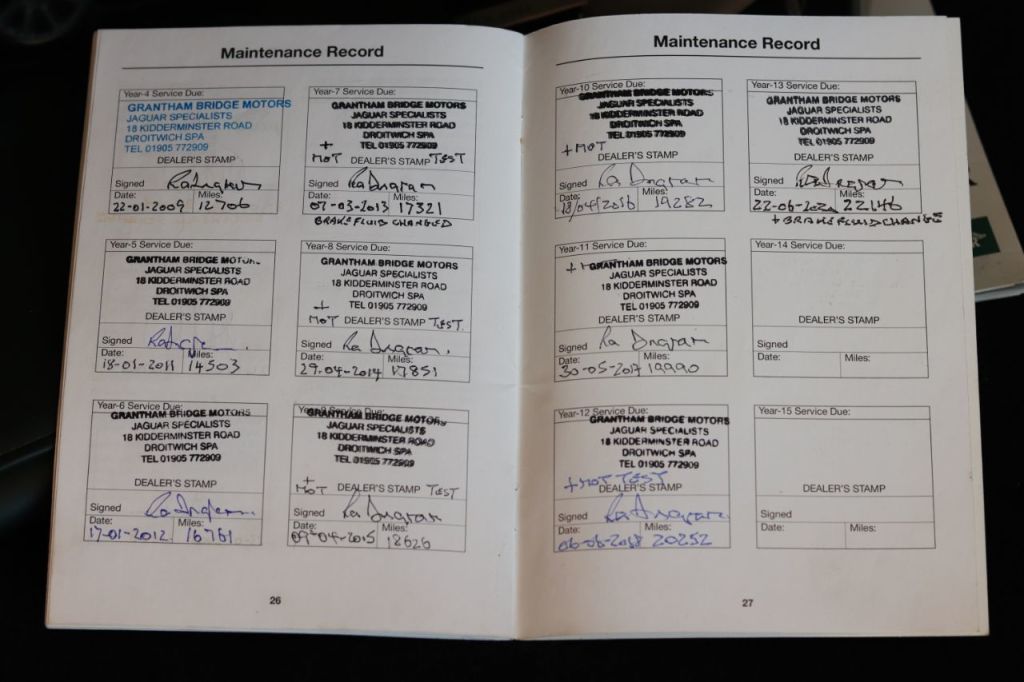 Maintenance Record
Year-4 Service Due:
GRANTHAM BRIDGE MOTORS
JAGUAR SPECIALISTS
18 KIDDERMINSTER ROAD
DROITWICH SPA
TEL 01905 772909
DEALER'S STAMP
Signed
Date: Miles:
22-01-2009 12706
Year-5 Service Due:
GRANTHAM BRIDGE MOTORS
JAGUAR SPECIALISTS
18 KIDDERMINSTER ROAD
DROITWICH SPA
TEL 01905 772909
DEALER'S STAMP
Signed
Date: Miles:
18-01-2011 14503
Year-6 Service Due:
GRANTHAM BRIDGE MOTORS
JAGUAR SPECIALISTS
18 KIDDERMINSTER ROAD
DROITWICH SPA
TEL 01905 772909
DEALER'S STAMP
Signed
Date: Miles:
17-01-2012 16761
Year-7 Service Due:
GRANTHAM BRIDGE MOTORS
JAGUAR SPECIALISTS
18 KIDDERMINSTER ROAD
DROITWICH SPA
TEL 01905 772909
+
MOT DEALER'S STAMP TEST
Signed Ra Ingram
Date: Miles:
07-03-2013 17321
BRAKE FLUID CHANGED
Year-8 Service Due:
GRANTHAM BRIDGE MOTORS
JAGUAR SPECIALISTS
18 KIDDERMINSTER ROAD
DROITWICH SPA
+ TEL 01905 772909
MOT DEALER'S STAMP TEST
Signed Ra Ingram
Date: Miles:
29-04-2014 17851
Year-9 Service Due:
GRANTHAM BRIDGE MOTORS
JAGUAR SPECIALISTS
18 KIDDERMINSTER ROAD
DROITWICH SPA
TEL 01905 772909
+
MOT DEALER'S STAMP TEST
Signed Ra Ingram
Date: Miles:
09-04-2015 18626
26
Maintenance Record
Year-10 Service Due:
GRANTHAM BRIDGE MOTORS
JAGUAR SPECIALISTS
18 KIDDERMINSTER ROAD
DROITWICH SPA
TEL 01905 772909
+ MOT
DEALER'S STAMP
Signed Ra Ingram
Date: Miles:
18/04/2016 19282
Year-11 Service Due:
+ GRANTHAM BRIDGE MOTORS
JAGUAR SPECIALISTS
18 KIDDERMINSTER ROAD
DROITWICH SPA
TEL 01905 772909
DEALER'S STAMP
Signed Ra Ingram
Date: Miles:
30-05-2017 19990
Year-12 Service Due:
GRANTHAM BRIDGE MOTORS
JAGUAR SPECIALISTS
18 KIDDERMINSTER ROAD
DROITWICH SPA
TEL 01905 772909
+ MOT TEST
DEALER'S STAMP
Signed Ra Ingram
Date: Miles:
06-06-2018 20252
Year-13 Service Due:
GRANTHAM BRIDGE MOTORS
JAGUAR SPECIALISTS
18 KIDDERMINSTER ROAD
DROITWICH SPA
TEL 01905 772909
DEALER'S STAMP
Signed
Date: Miles:
22-06-2020 22146
+ BRAKE FLUID CHANGE
Year-14 Service Due:
DEALER'S STAMP
Signed
Date: Miles:
Year-15 Service Due:
DEALER'S STAMP
Signed
Date: Miles:
27